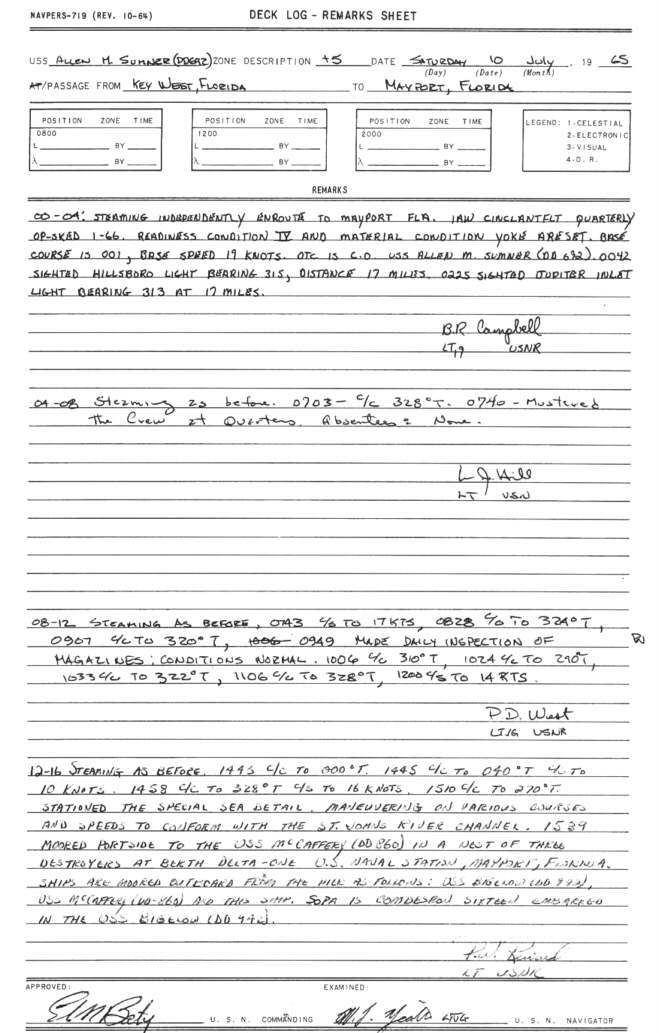 NAVPERS-719 (REV. 10-64) DECK LOG - REMARKS SHEET
USS ALLEN M. SUMNER (DD692) ZONE DESCRIPTION +5 DATE SATURDAY 10 July, 19 65
(Day) (Date) (Month)
AT/PASSAGE FROM KEY WEST, FLORIDA TO MAYPORT, FLORIDA
POSITION ZONE TIME POSITION ZONE TIME POSITION ZONE TIME LEGEND: 1-CELESTIAL
0800 1200 2000 2-ELECTRONIC
L BY L BY L BY 3-VISUAL
λ BY λ BY λ BY 4-D. R.
REMARKS
00-04: STEAMING INDEPENDENTLY ENROUTE TO MAYPORT FLA. IAW CINCLANTFLT QUARTERLY
OP-SKED 1-66. READINESS CONDITION IV AND MATERIAL CONDITION YOKE ARE SET. BASE
COURSE IS 001, BASE SPEED 19 KNOTS. OTC IS C.O. USS ALLEN M. SUMNER (DD 692). 0042
SIGHTED HILLSBORO LIGHT BEARING 315, DISTANCE 17 MILES. 0225 SIGHTED JUPITER INLET
LIGHT BEARING 313 AT 17 MILES.
B.R. Campbell
LTJG USNR
04-08 Steaming as before. 0703- C/C 328°T. 0740 - Mustered
The Crew at Quarters. Absentees: None.
L J Hill
LT USN
08-12 STEAMING AS BEFORE, 0743 C/S TO 17KTS, 0828 C/C TO 324°T,
0907 C/C TO 320°T, 1006 0949 MADE DAILY INSPECTION OF
MAGAZINES; CONDITIONS NORMAL. 1006 C/C 310°T, 1024 C/C TO 290°T,
1033 C/C TO 322°T, 1106 C/C TO 328°T, 1200 C/S TO 14 KTS.
P.D. West
LTJG USNR
12-16 STEAMING AS BEFORE. 1443 C/C TO 000°T. 1445 C/C TO 040°T C/S TO
10 KNOTS. 1458 C/C TO 328°T C/S TO 16 KNOTS. 1510 C/C TO 270°T.
STATIONED THE SPECIAL SEA DETAIL. MANEUVERING ON VARIOUS COURSES
AND SPEEDS TO CONFORM WITH THE ST. JOHNS RIVER CHANNEL. 1539
MOORED PORTSIDE TO THE USS McCAFFERY (DD 860) IN A NEST OF THREE
DESTROYERS AT BERTH DELTA-ONE U.S. NAVAL STATION, MAYPORT, FLORIDA.
SHIPS ARE MOORED OUTBOARD FROM THE PIER AS FOLLOWS: USS BIGELOW (DD 942),
USS McCAFFERY (DD-860) AND THIS SHIP. SOPA IS COMDESRON SIXTEEN EMBARKED
IN THE USS BIGELOW (DD 942).
LT USNR
APPROVED: EXAMINED:
U. S. N. COMMANDING LTJG U. S. N. NAVIGATOR